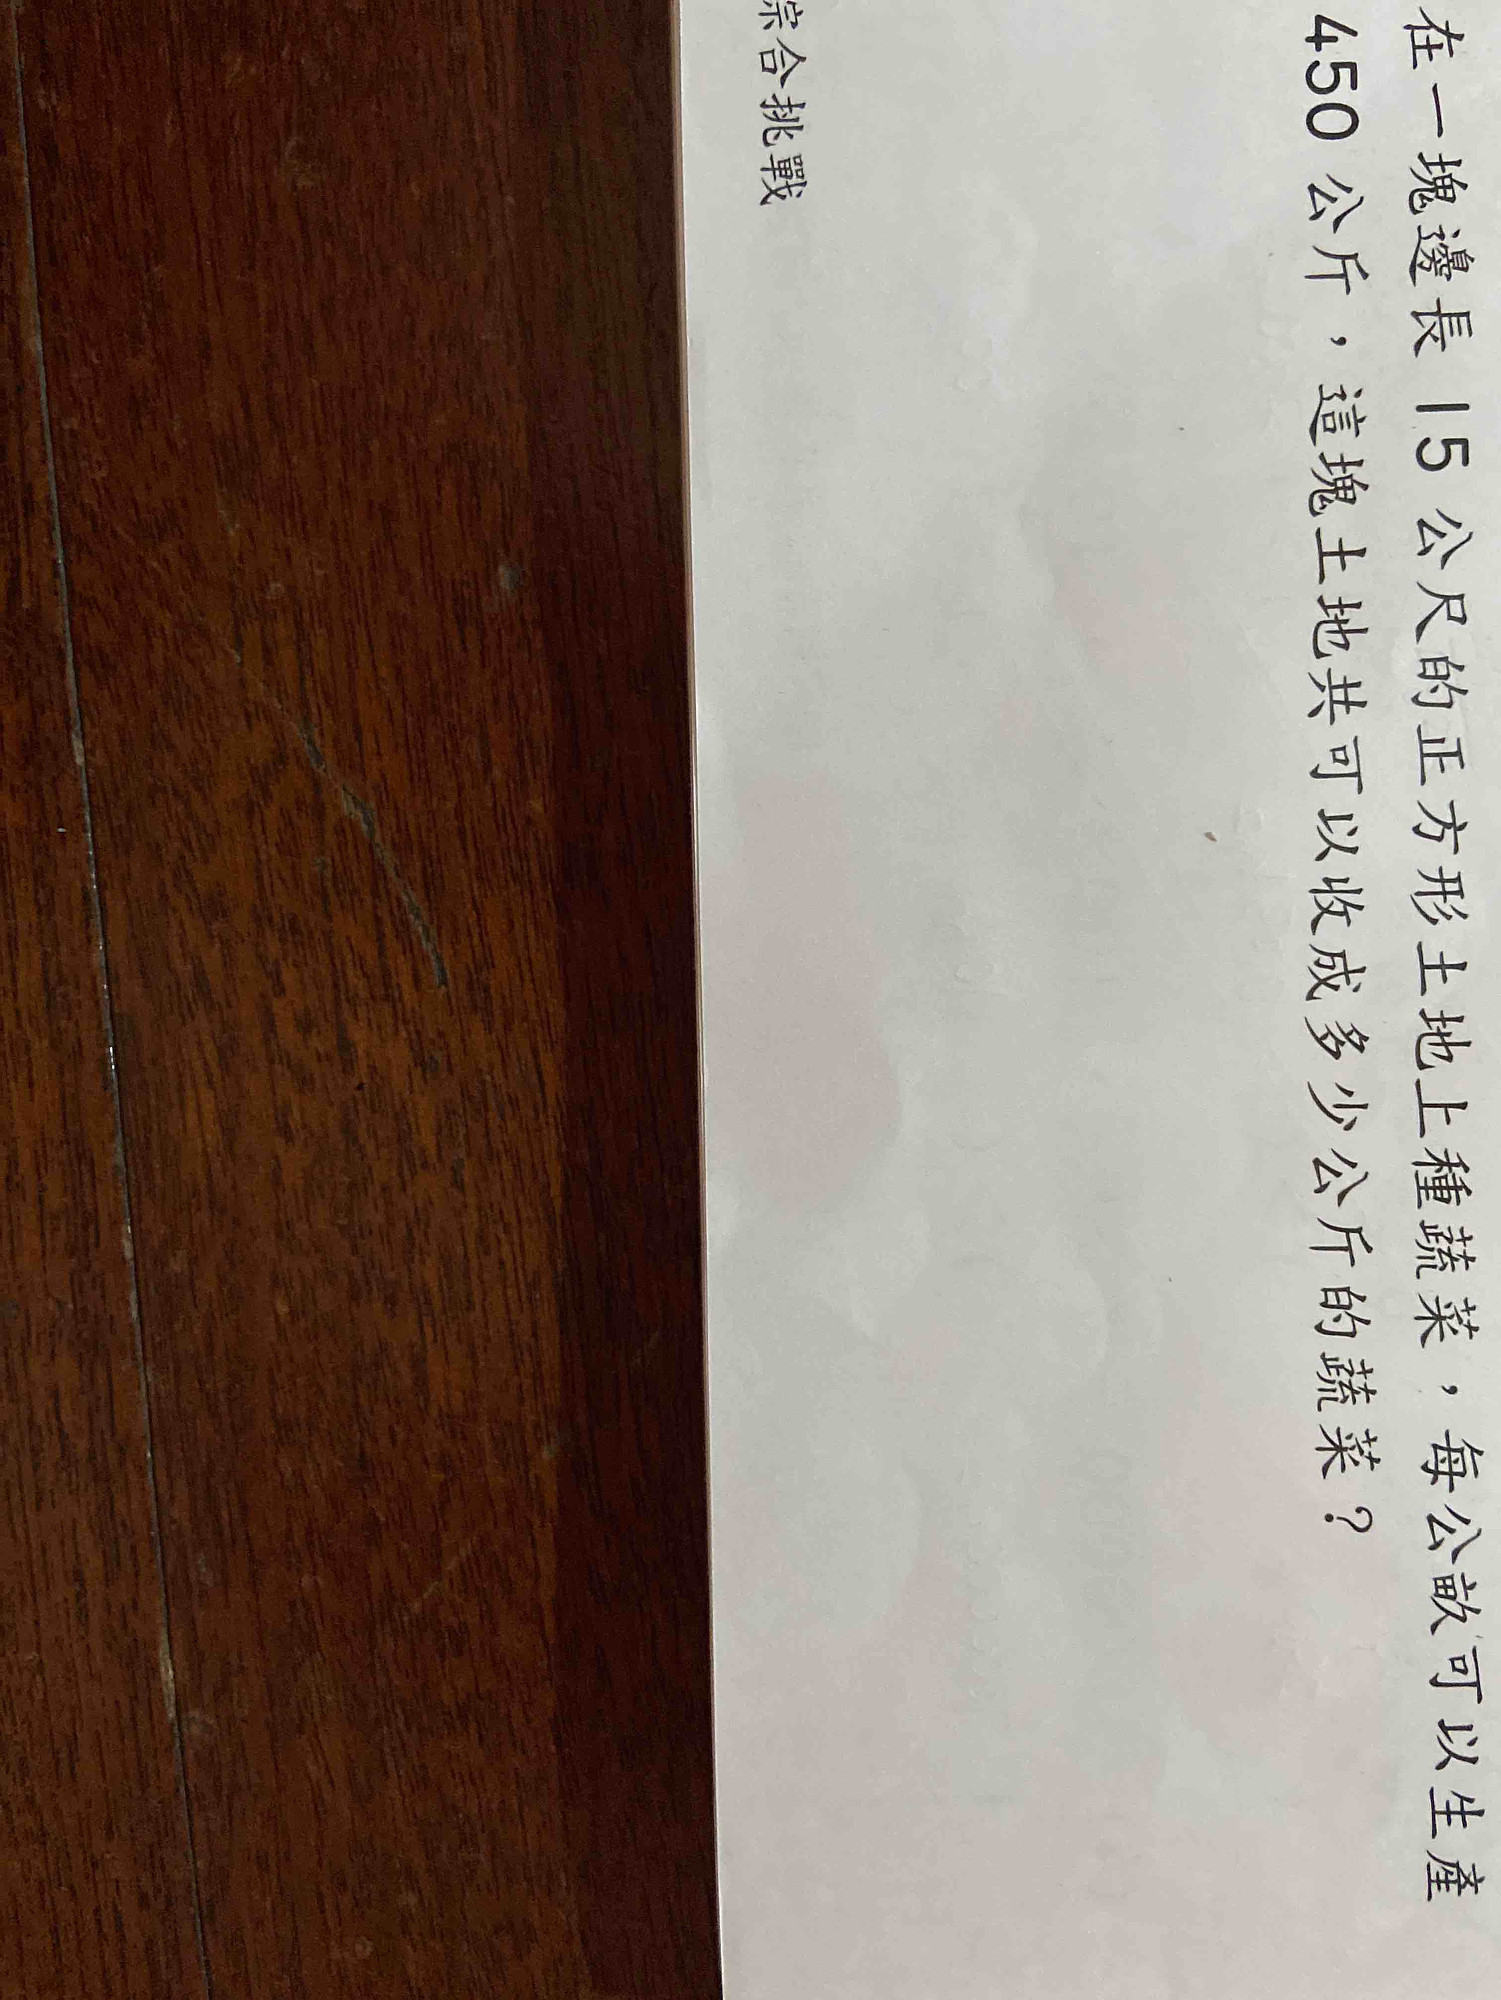 在一塊邊長 15 公尺的正方形土地上種蔬菜，每公畝可以生產
450 公斤，這塊土地共可以收成多少公斤的蔬菜？
綜合挑戰